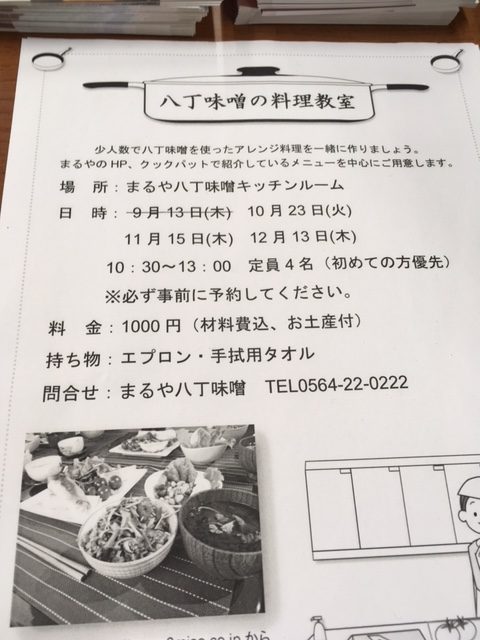 八丁味噌の料理教室
少人数で八丁味噌を使ったアレンジ料理を一緒に作りましょう。
まるやのHP、クックパットで紹介しているメニューを中心にご用意します。
場　所：まるや八丁味噌キッチンルーム
日　時：9月13日(木)　10月23日(火)
11月15日(木)　12月13日(木)
10：30～13：00　定員4名（初めての方優先）
※必ず事前に予約してください。
料　金：1000円（材料費込、お土産付）
持ち物：エプロン・手拭用タオル
問合せ：まるや八丁味噌　TEL0564-22-0222